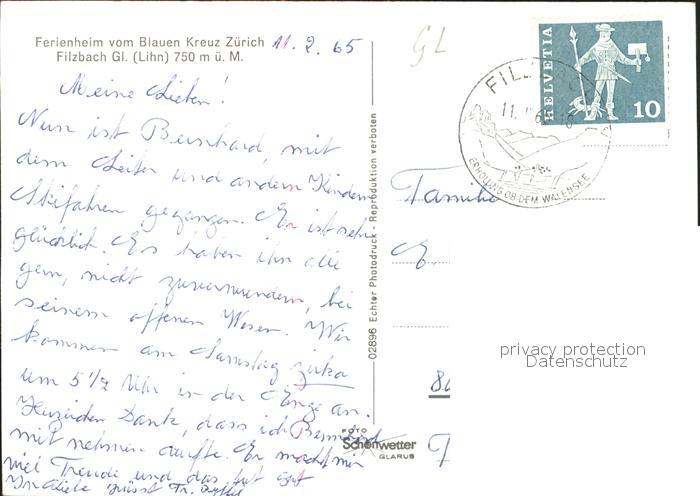 Ferienheim vom Blauen Kreuz Zürich 11.2.65
Filzbach Gl. (Lihn) 750 m ü. M.
Meine Lieben!
Nun ist Bernhard, mit
dem Leiter und andern Kindern
Skifahren gegangen. Er ist sehr
glücklich. Es haben ihn alle
gern, nicht zuverwundern, bei
seinem offenen Wesen. Wir
kommen am Samstag zirka
um 5 1/2 Uhr in der Enge an.
Herzlichen Dank, dass ich Bernhard
mit nehmen durfte. Er macht mir
viel Freude und das tut gut
In Liebe grüsst
02896 Echter Photodruck - Reproduktion verboten
FOTO
Schönwetter
GLARUS
GL
HELVETIA
10
FILZBACH
11.
ERHOLUNG OB DEM WALENSEE
Familie
privacy protection
Datenschutz